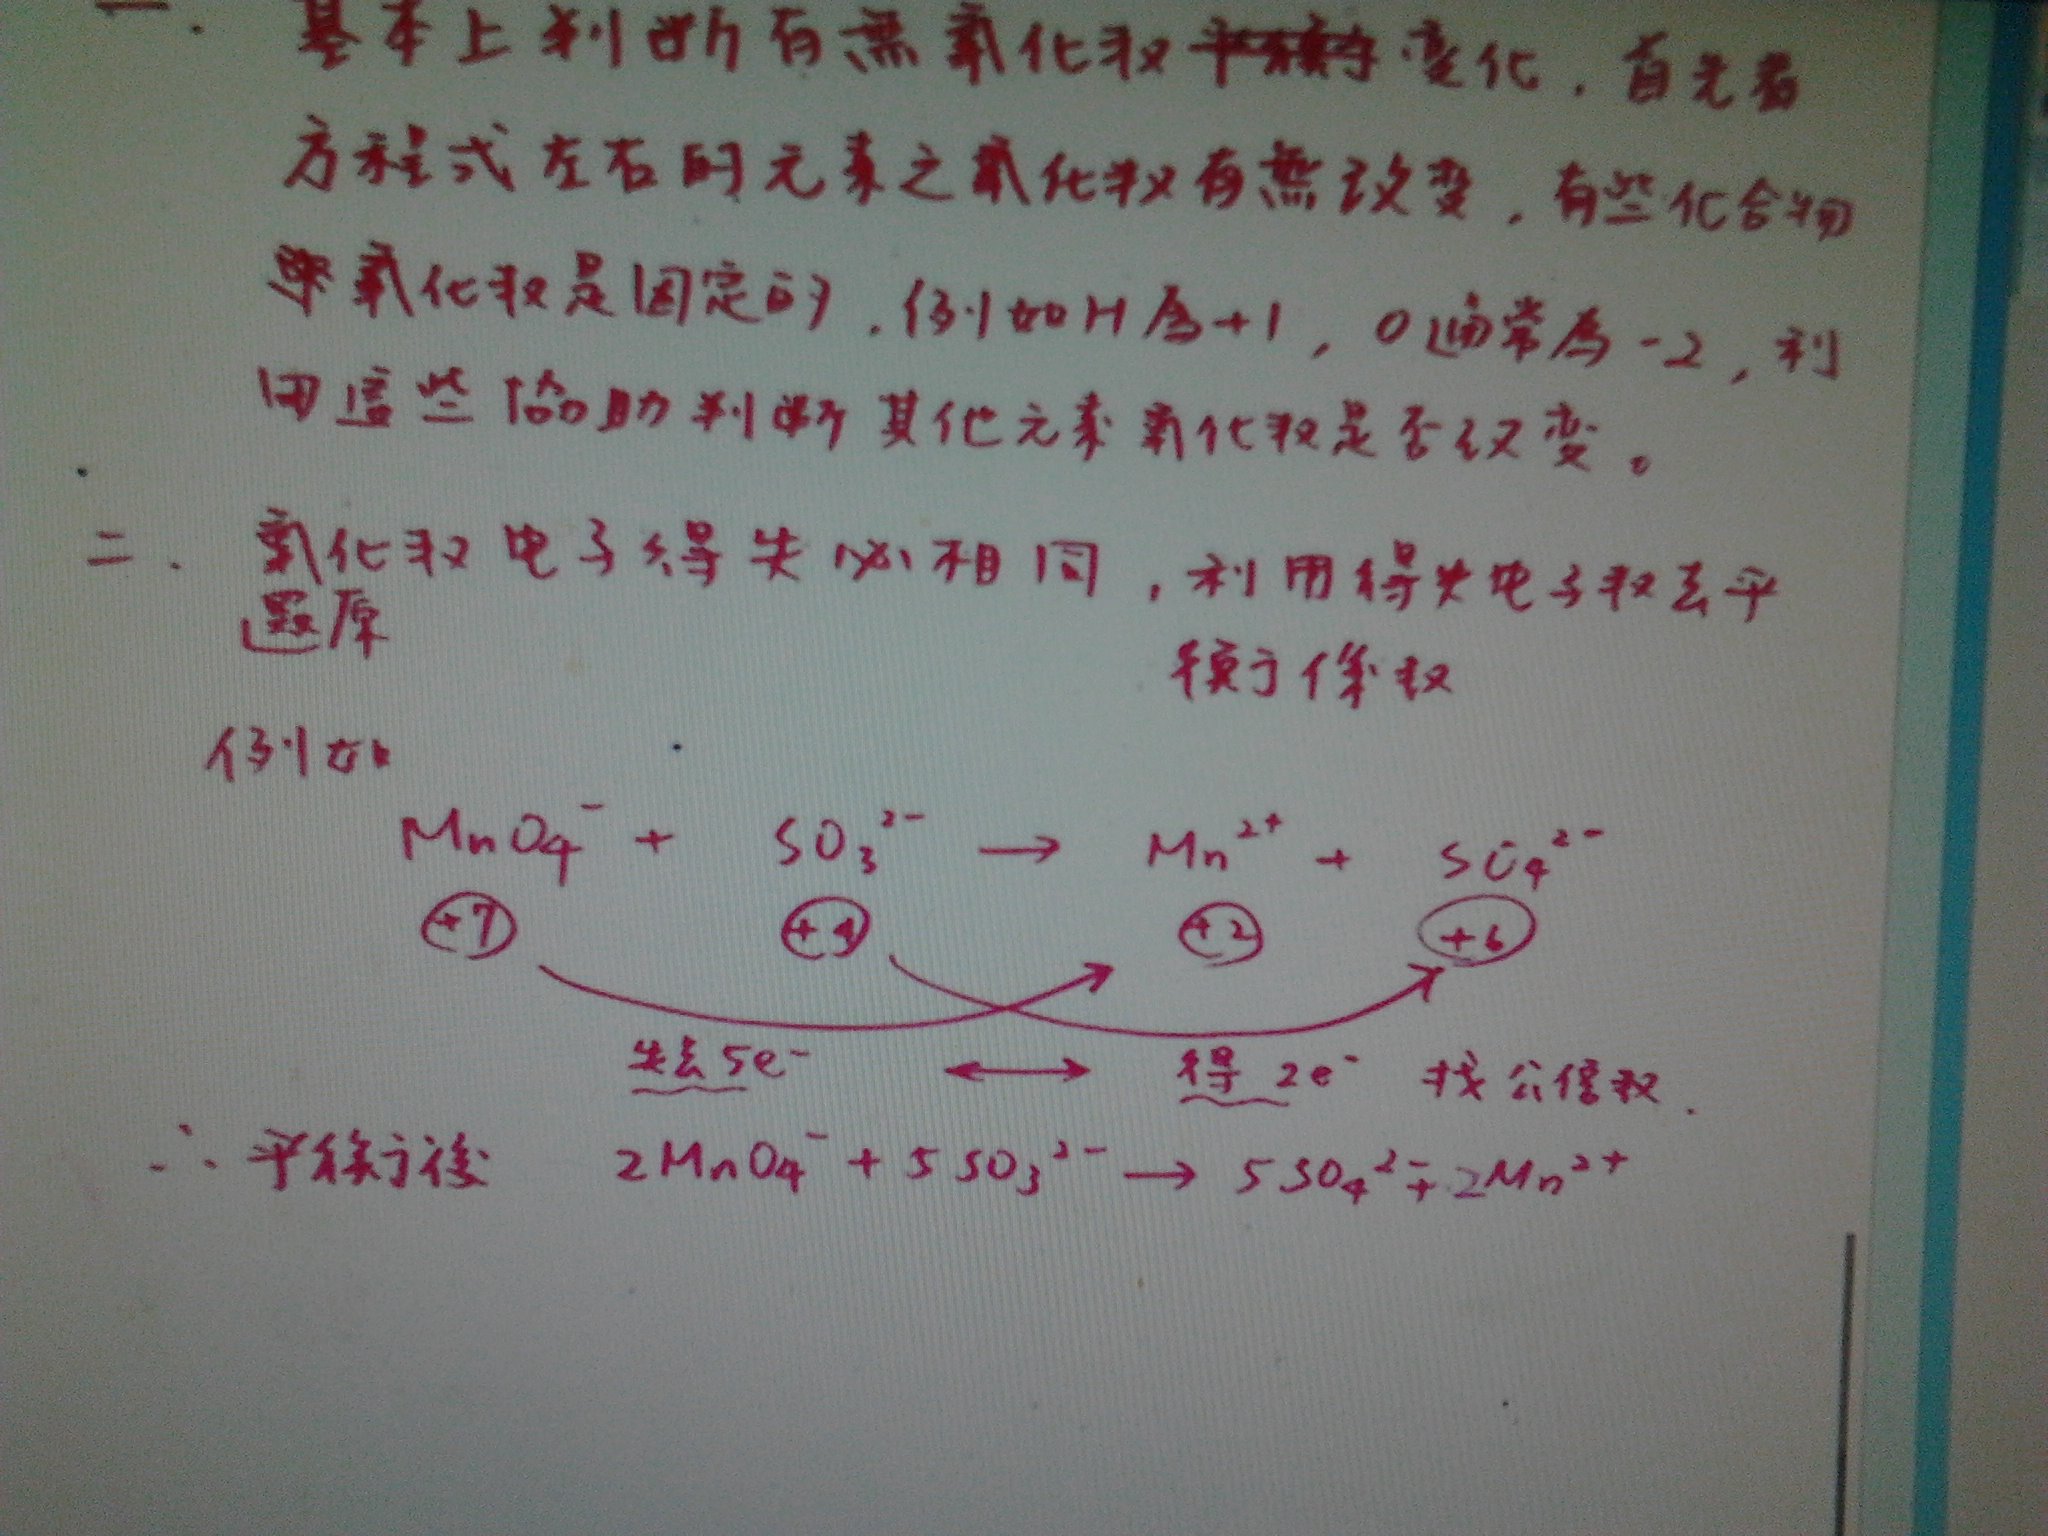 一. 基本上判断有無氧化数变化，首先看
方程式左右的元素之氧化数有無改变，有些化合物
氧化数是固定的，例如H為+1，O通常為-2，利
用這些協助判断其他元素氧化数是否改变。
二. 氧化数电子得失必相同，利用得失电子数去平
還原
衡係数
例如
MnO₄⁻ + SO₃²⁻ → Mn²⁺ + SO₄²⁻
+7 +4 +2 +6
失去5e⁻ ↔ 得2e⁻ 找公倍数.
∴ 平衡後 2MnO₄⁻ + 5SO₃²⁻ → 5SO₄²⁻ + 2Mn²⁺